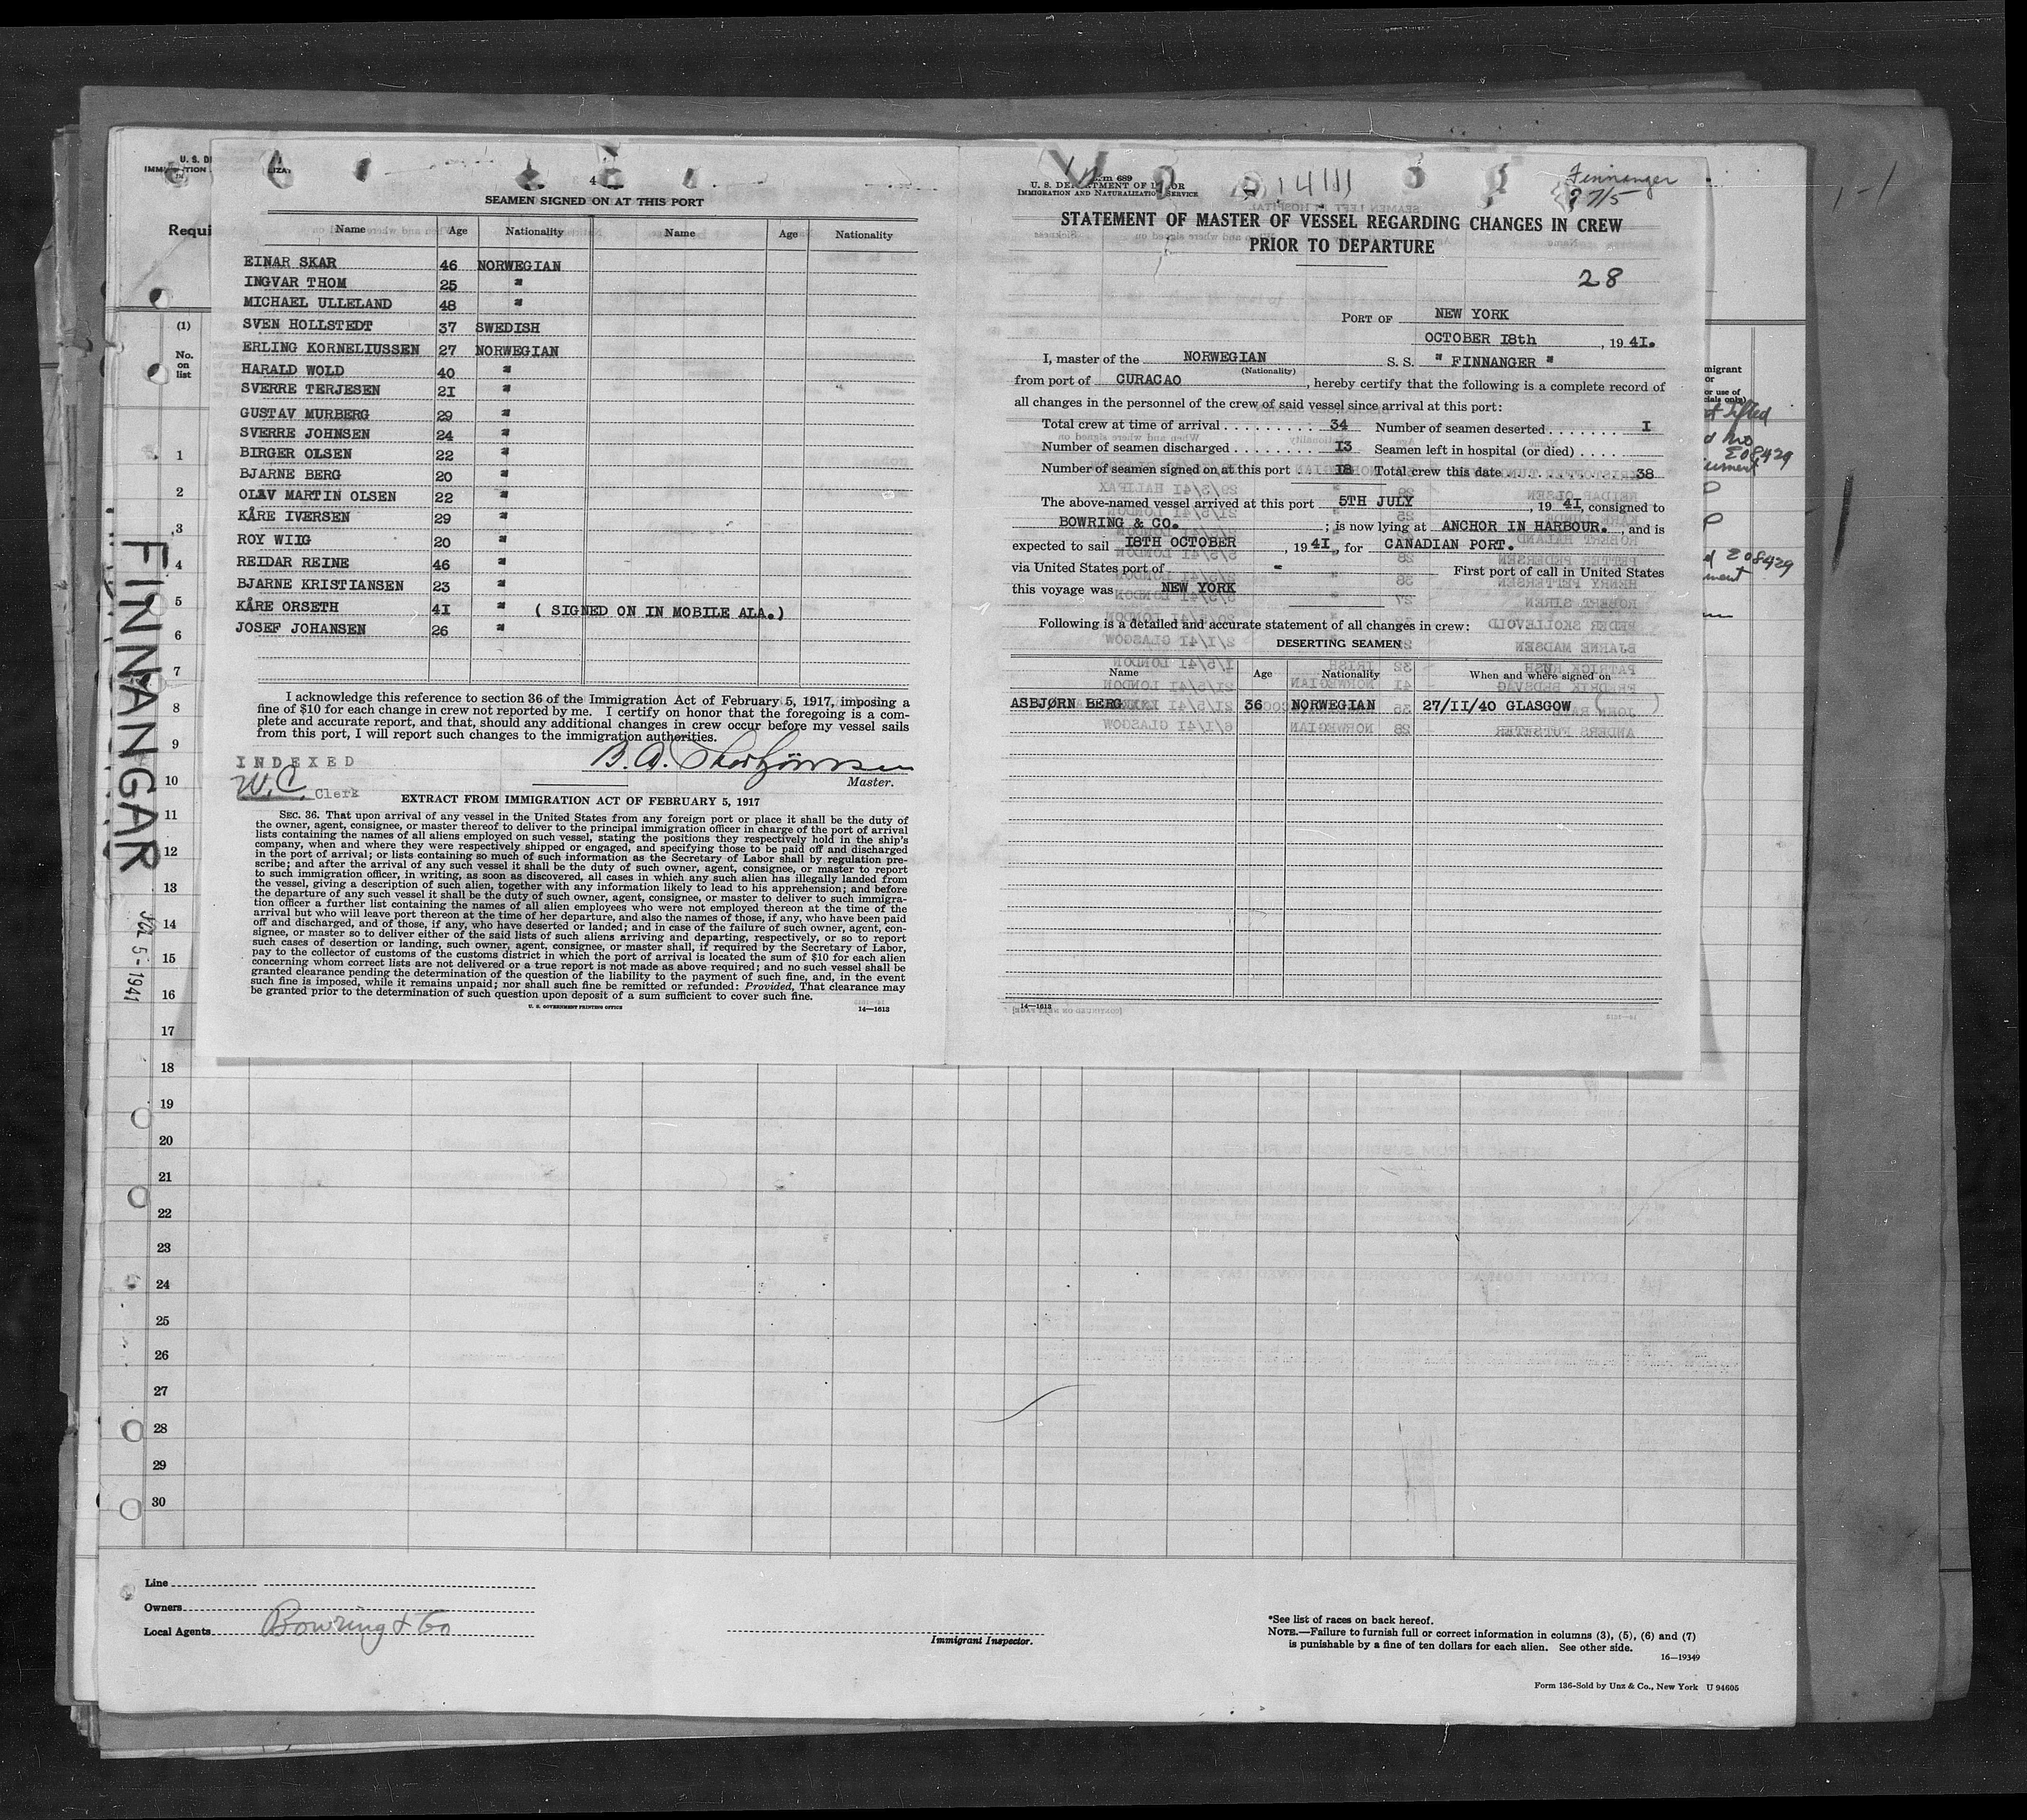 4
SEAMEN SIGNED ON AT THIS PORT
Name Age Nationality Name Age Nationality
EINAR SKAR 46 NORWEGIAN
INGVAR THOM 25 "
MICHAEL ULLELAND 48 "
SVEN HOLLSTEDT 37 SWEDISH
ERLING KORNELIUSSEN 27 NORWEGIAN
HARALD WOLD 40 "
SVERRE TERJESEN 2I "
GUSTAV MURBERG 29 "
SVERRE JOHNSEN 24 "
BIRGER OLSEN 22 "
BJARNE BERG 20 "
OLAV MARTIN OLSEN 22 "
KÅRE IVERSEN 29 "
ROY WIIG 20 "
REIDAR REINE 46 "
BJARNE KRISTIANSEN 23 "
KÅRE ORSETH 4I " ( SIGNED ON IN MOBILE ALA.)
JOSEF JOHANSEN 26 "
I acknowledge this reference to section 36 of the Immigration Act of February 5, 1917, imposing a
fine of $10 for each change in crew not reported by me. I certify on honor that the foregoing is a com-
plete and accurate report, and that, should any additional changes in crew occur before my vessel sails
from this port, I will report such changes to the immigration authorities.
INDEXED
W.C. Clerk
Master.
EXTRACT FROM IMMIGRATION ACT OF FEBRUARY 5, 1917
SEC. 36. That upon arrival of any vessel in the United States from any foreign port or place it shall be the duty of
the owner, agent, consignee, or master thereof to deliver to the principal immigration officer in charge of the port of arrival
lists containing the names of all aliens employed on such vessel, stating the positions they respectively hold in the ship's
company, when and where they were respectively shipped or engaged, and specifying those to be paid off and discharged
in the port of arrival; or lists containing so much of such information as the Secretary of Labor shall by regulation pre-
scribe; and after the arrival of any such vessel it shall be the duty of such owner, agent, consignee, or master to report
to such immigration officer, in writing, as soon as discovered, all cases in which any such alien has illegally landed from
the vessel, giving a description of such alien, together with any information likely to lead to his apprehension; and before
the departure of any such vessel it shall be the duty of such owner, agent, consignee, or master to deliver to such immigra-
tion officer a further list containing the names of all alien employees who were not employed thereon at the time of the
arrival but who will leave port thereon at the time of her departure, and also the names of those, if any, who have been paid
off and discharged, and of those, if any, who have deserted or landed; and in case of the failure of such owner, agent, con-
signee, or master so to deliver either of the said lists of such aliens arriving and departing, respectively, or so to report
such cases of desertion or landing, such owner, agent, consignee, or master shall, if required by the Secretary of Labor,
pay to the collector of customs of the customs district in which the port of arrival is located the sum of $10 for each alien
concerning whom correct lists are not delivered or a true report is not made as above required; and no such vessel shall be
granted clearance pending the determination of the question of the liability to the payment of such fine, and, in the event
such fine is imposed, while it remains unpaid; nor shall such fine be remitted or refunded: Provided, That clearance may
be granted prior to the determination of such question upon deposit of a sum sufficient to cover such fine.
U. S. GOVERNMENT PRINTING OFFICE 14—1613
Form 689
U. S. DEPARTMENT OF LABOR
IMMIGRATION AND NATURALIZATION SERVICE
Finnanger
7/5
STATEMENT OF MASTER OF VESSEL REGARDING CHANGES IN CREW
PRIOR TO DEPARTURE
28
PORT OF NEW YORK
OCTOBER I8th, 19 4I.
I, master of the NORWEGIAN S. S. " FINNANGER "
(Nationality)
from port of CURACAO, hereby certify that the following is a complete record of
all changes in the personnel of the crew of said vessel since arrival at this port:
Total crew at time of arrival . . . . . . . . 34 Number of seamen deserted . . . . . . . . I
Number of seamen discharged . . . . . . . I3 Seamen left in hospital (or died) . . . .
Number of seamen signed on at this port I8 Total crew this date . . . . . . . . 38
The above-named vessel arrived at this port 5TH JULY, 19 4I, consigned to
BOWRING & CO. ; is now lying at ANCHOR IN HARBOUR. , and is
expected to sail I8TH OCTOBER, 19 4I, for CANADIAN PORT.
via United States port of - First port of call in United States
this voyage was NEW YORK
Following is a detailed and accurate statement of all changes in crew:
DESERTING SEAMEN
Name Age Nationality When and where signed on
ASBJØRN BERG 36 NORWEGIAN 27/II/40 GLASGOW
14—1613
U. S. D
Requi
(1)
No.
on
list
1
2
3
4
5
6
7
8
9
10
11
12
13
14
15
16
17
18
19
20
21
22
23
24
25
26
27
28
29
30
FINNANGAR
JUL 5 - 1941
E08429
E08429
Line
Owners
Local Agents Bowring & Co
Immigrant Inspector.
*See list of races on back hereof.
NOTE.—Failure to furnish full or correct information in columns (3), (5), (6) and (7)
is punishable by a fine of ten dollars for each alien. See other side.
16—19349
Form 136-Sold by Unz & Co., New York U 94605